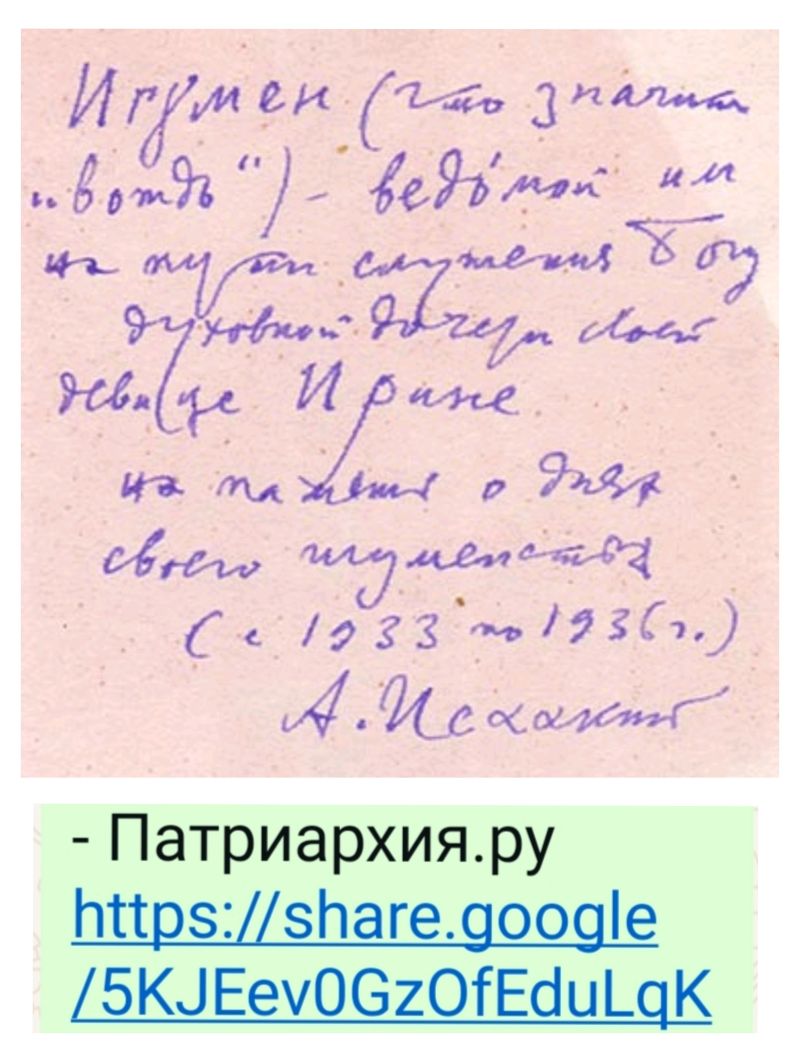 Игумен (что значит
„вождь“) – ведо́мой им
на пути служения Богу
духовной дочери своей
девице Ирине
на память о днях
своего игуменства
(с 1933 по 1936 г.)
А. Исаакий
- Патриархия.ру
https://share.google
/5KJEev0GzOfEduLqK